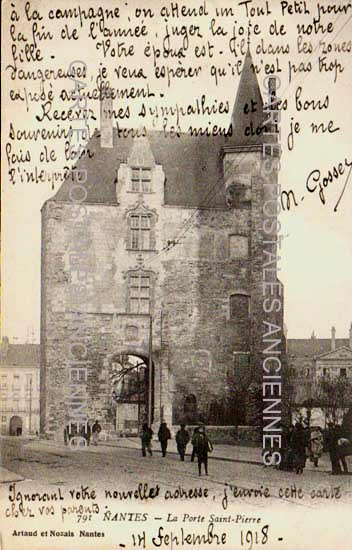 à la campagne; on attend un Tout Petit pour
la fin de l'année, jugez la joie de notre
fille. Votre époux est-il dans les zones
dangereuses, je veux espérer qu'il n'est pas trop
exposé actuellement.
Recevez mes sympathies et les bons
souvenirs de tous les miens dont je me
fais de loin
l'interprète
M. Gossey
CARTES POSTALES ANCIENNES
CARTES POSTALES ANCIENNES
Ignorant votre nouvelle adresse, j'envoie cette carte
chez vos parents.
791 NANTES - La Porte Saint-Pierre
Artaud et Nozais Nantes
14 Septembre 1918 -